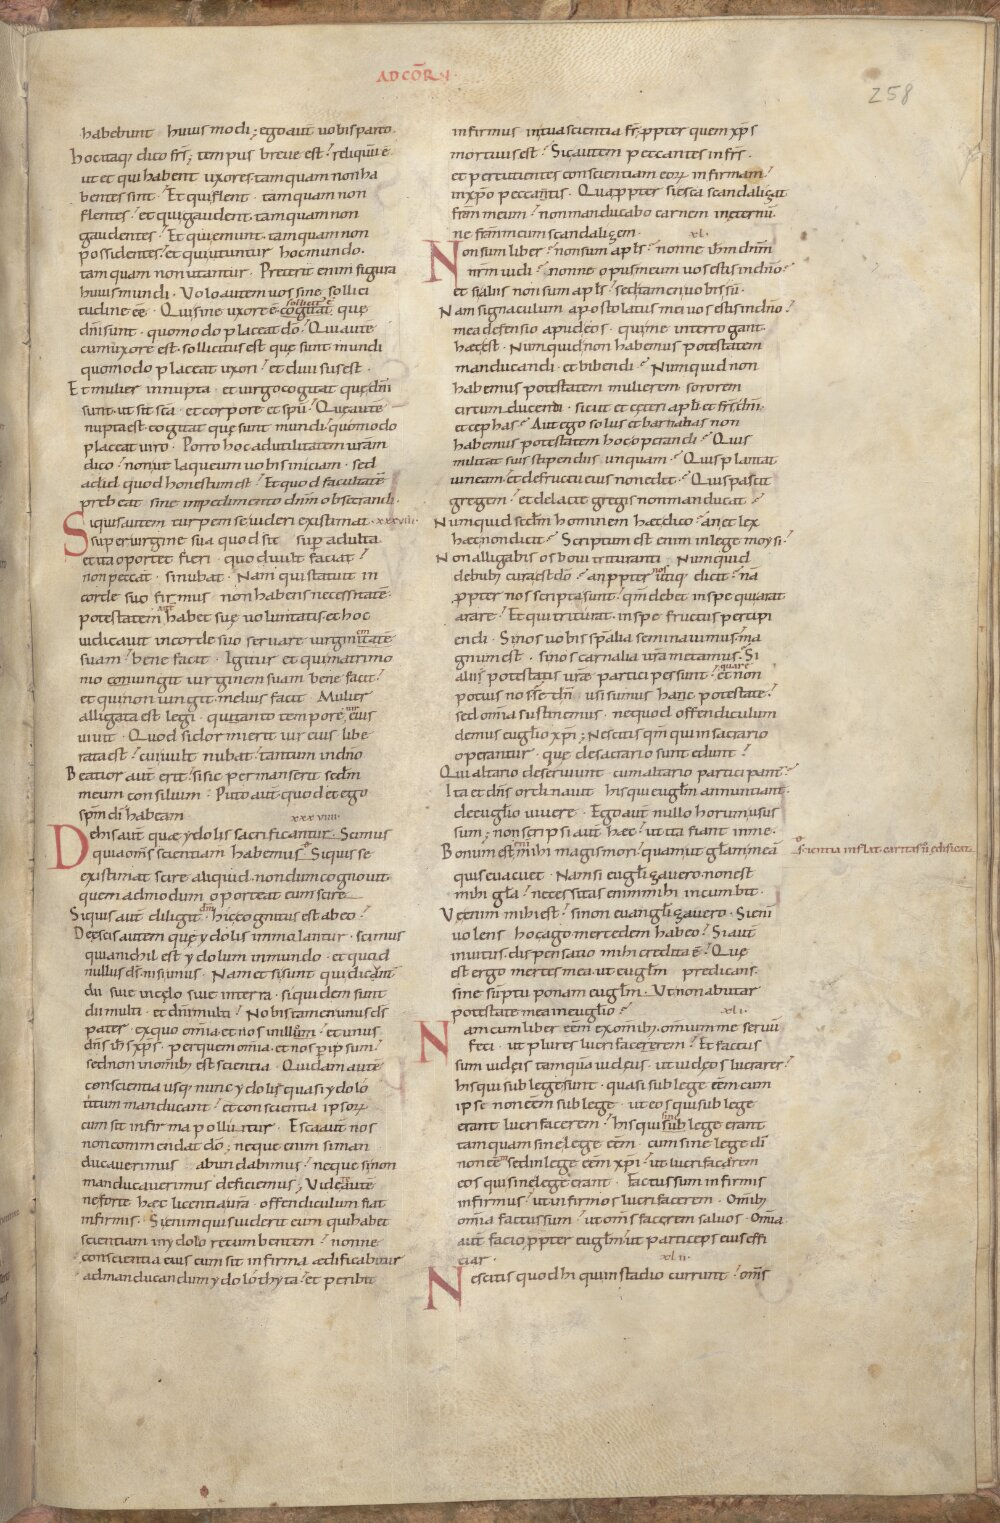 AD COR̄ I
258
habebunt huiusmodi; ego aut̄ uobis parco.
hoc itaq; dico fr̄s; tempus breue est. reliquū ē
ut et qui habent uxores tamquam non ha
bentes sint. Et qui flent. tamquam non
flentes. et qui gaudent. tamquam non
gaudentes. Et qui emunt. tamquam non
possidentes. et qui utuntur hoc mundo.
tamquam non utantur. Preterit enim figura
huius mundi. Uolo autem uos sine sollici
tudine eē. Qui sine uxore ē. cogitat que
sollicit ē
dn̄i sunt. quomodo placeat dō. Qui autē
cum uxore est. sollicitus est que sunt mundi
quomodo placeat uxori. et diuisus est.
Et mulier innupta. et uirgo cogitat que dn̄i
sunt. ut sit sc̄a. et corpore et spū. Que autē
nupta est. cogitat que sunt mundi. quomodo
placeat uiro. Porro hoc ad utilitatem uram
dico. non ut laqueum uobis iniciam. sed
ad id quod honestum est. Et quod facultatē
prebeat sine impedimento dn̄m obsecrandi.
Siquis autem turpem se uideri existimat. xxxuiii.
super uirgine sua quod sit superadulta.
et ita oportet fieri. quod uult faciat.
non peccat. si nubat. Nam qui statuit in
corde suo firmus non habens necessitatē.
potestatem aut̄ habet sue uoluntatis. et hoc
iudicauit in corde suo seruare uirginitatē
suam. bene facit. Igitur et qui matrimo
nio coniungit uirginem suam bene facit.
et qui non iungit. melius facit Mulier
alligata est legi. quanto tempore uir eius
uiuit. Quod si dormierit uir eius libe
rata est. cui uult nubat. tantum in dn̄o
Beatior aut̄ erit. si sic permanserit secdm
meum consilium. Puto aut̄ quod et ego
sp̄m dī habeam
xxxuiiii.
De his aut̄ quae ydolis sacrificantur. Scimus
quia om̄s scientiam habemus. Siquis se
existimat scire aliquid. nondum cognouit
quemadmodum oporteat eum scire
Siquis aut̄ diligit dm̄. hic cognitus est ab eo.
De escis autem que ydolis immolantur. scimus
quia nichil est ydolum in mundo. et quod
nullus ds̄. nisi unus. Nam et si sunt qui dicant̄
dii siue in celo siue in terra. siquidem sunt
dii multi. et dn̄i multi. Nobis tamen unus ds̄
pater. ex quo om̄ia. et nos in illum. et unus
dn̄s ih̄s xp̄s. per quem om̄ia. et nos per ipsum.
sed non in om̄ib; est scientia. Quidam autē
conscientia usq; nunc ydoli. quasi ydolo
titum manducant. et conscientia ipsorum
cum sit infirma polluitur. Esca aut̄ nos
non commendat dō; neque enim si man
ducauerimus abundabimus. neque si non
manducauerimus deficiemus; Uidete autē
ne forte haec licentia ur̄a. offendiculum fiat
infirmis. Si enim quis uiderit eum qui habet
scientiam in ydolo recumbentem. nonne
conscientia eius cum sit infirma aedificabitur
ad manducandum ydolothyta. et peribit
infirmus in tua scientia fr̄. ppter quem xp̄s
mortuus est. Sic autem peccantes in frs.
et percutientes conscientiam eorum infirmam.
in xp̄o peccantis. Quappter si esca scandalizat
fratrem meum. non manducabo carnem in eternū.
ne fratrem meum scandalizem. xl.
Non sum liber. non sum apls. nonne ih̄m dn̄m
nr̄m uidi. nonne opus meum uos estis in dn̄o.
et si aliis non sum apls. sed tamen uobis sū.
Nam signaculum apostolatus mei uos estis in dn̄o.
mea defensio apud eos. qui me interrogant.
haec est. Numquid non habemus potestatem
manducandi. et bibendi. Numquid non
habemus potestatem mulierem sororem
circumducendi. sicut et ceteri apli. et fr̄s dn̄i.
et cephas. Aut ego solus et barnabas non
habemus potestatem hoc operandi. Quis
militat suis stipendiis unquam. Quis plantat
uineam. et de fructu eius non edit. Quis pascit
gregem. et de lacte gregis non manducat.
Numquid secdm hominem haec dico. an et lex
haec non dicit. Scriptum est enim in lege moysi.
Non alligabis os boui trituranti. Numquid
de bubus cura est dō. an ppter nos utiq; dicit. nā
ppter nos scripta sunt. qm̄ debet in spe qui arat
arare. Et qui triturat. in spe fructus percipi
endi. Si nos uobis sp̄alia seminauimus. ma
gnum est. si nos carnalia ur̄a metamus. Si
alii potestatis urae participes sunt. quare et non
potius nos. sed n̄ usi sumus hanc potestatē.
sed om̄ia sustinemus. ne quod offendiculum
demus euglio xpi; Nescitis qm̄ qui in sacrario
operantur. que de sacrario sunt edunt.
Qui altario deseruiunt cum altario participant.
Ita et dn̄s ordinauit his qui euglm annuntiant.
de euglio uiuere. Ego aut̄ nullo horum usus
sum; non scripsi aut̄ haec. ut ita fiant in me.
Bonum est enim mihi magis mori. quam ut glam meā
scientia inflat. caritas ū edificat.
quis euacuet. Nam si euglizauero. non est
mihi gla. necessitas enim mihi incumbit.
Ue enim mihi est. si non euanglizauero. Si enī
uolens hoc ago mercedem habeo. Si aut̄
inuitus. dispensatio mihi credita ē. Que
est ergo merces mea. ut euglm predicans.
sine sūptu ponam euglm. Ut non abutar
potestate mea in euglio. xli.
Nam cum liber eēm ex om̄ib; omnium me seruū
feci. ut plures lucri facerem. Et factus
sum iudeis tamquā iudeus. ut iudeos lucrarer.
his qui sub lege sunt. quasi sub lege eēm cum
ipse non eēm sub lege. ut eos qui sub lege
erant lucri facerem. his qui sine lege erant
tamquam sine lege eēm. cum sine lege dī
non eēm sed in lege eēm xpi. ut lucri facerem
eos qui sine lege erant. Factus sum infirmis
infirmus. ut infirmos lucri facerem. Om̄ib;
om̄ia factus sum. ut om̄s facerem saluos. Om̄ia
aut̄ facio ppter euglm. ut particeps eius effi
ciar. xlii.
Nescitis quod hi qui in stadio currunt. om̄s